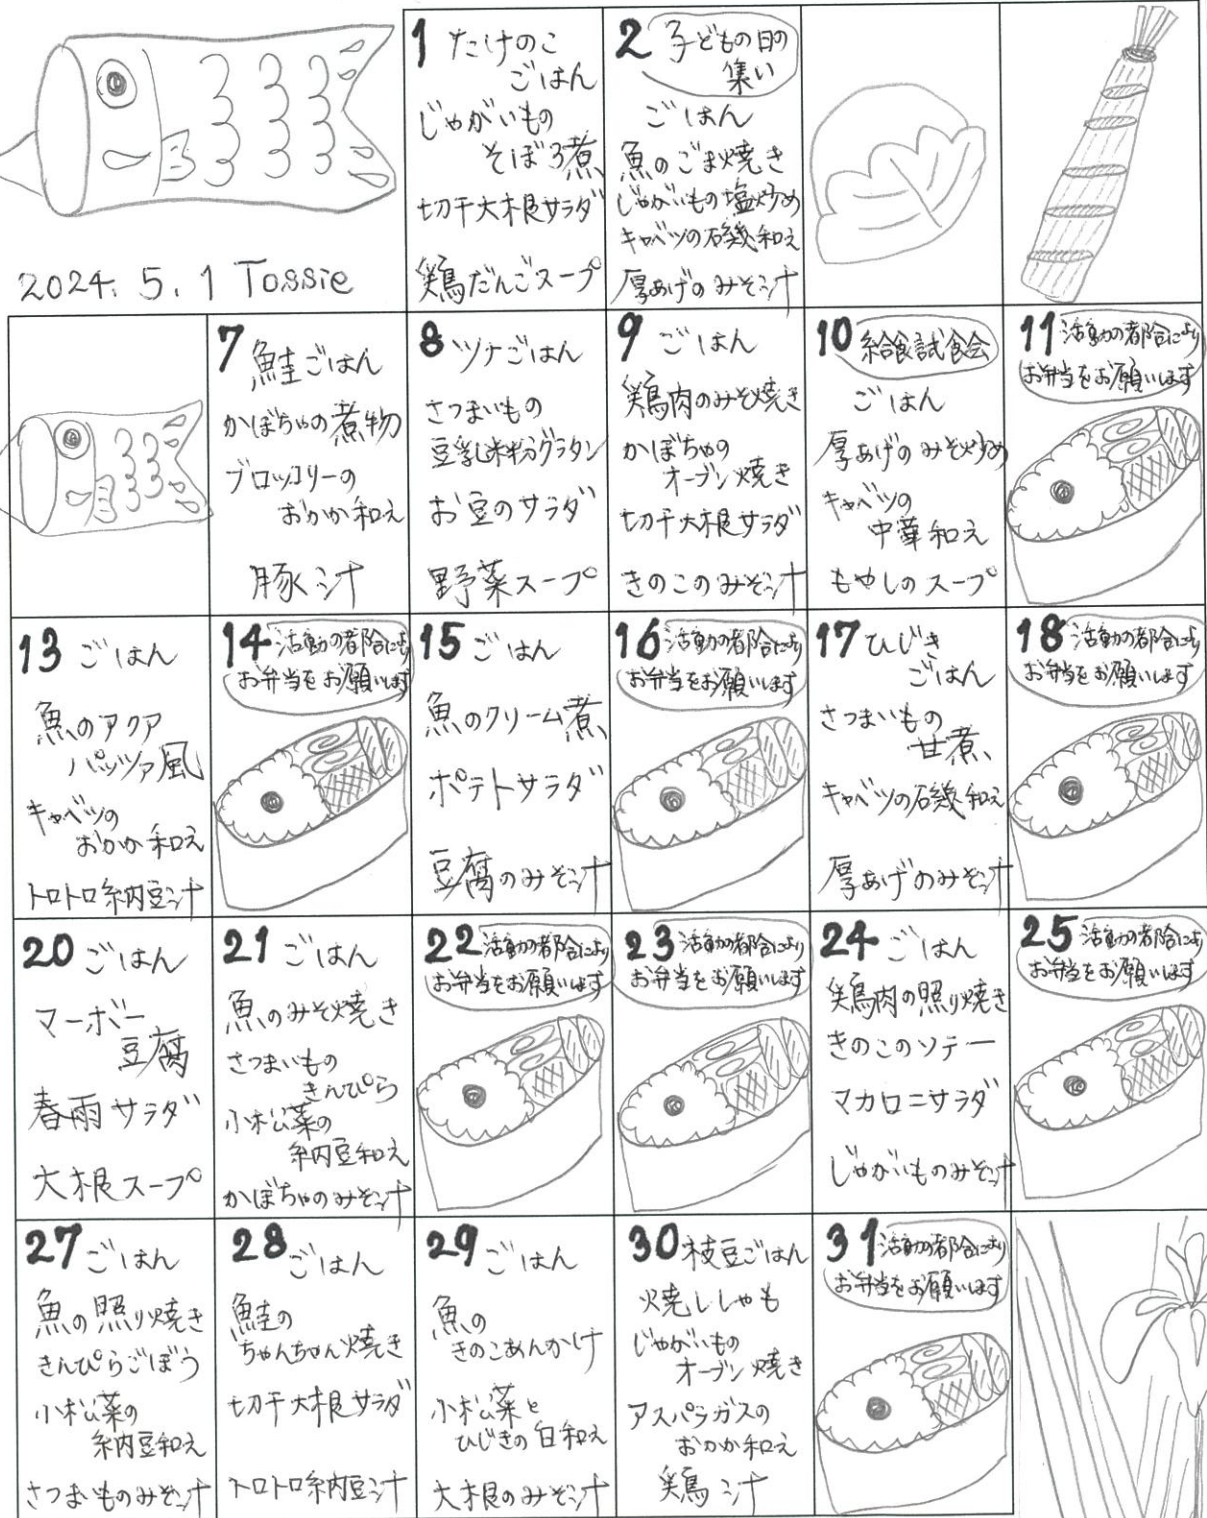 2024. 5. 1 Tossie
1 たけのこ
ごはん
じゃがいもの
そぼろ煮
切干大根サラダ
鶏だんごスープ
2 子どもの日の
集い
ごはん
魚のごま焼き
じゃがいもの塩炒め
キャベツの磯和え
厚あげのみそ汁
7 鮭ごはん
かぼちゃの煮物
ブロッコリーの
おかか和え
豚汁
8 ツナごはん
さつまいもの
豆乳米粉グラタン
お豆のサラダ
野菜スープ
9 ごはん
鶏肉のみそ焼き
かぼちゃの
オーブン焼き
切干大根サラダ
きのこのみそ汁
10 給食試食会
ごはん
厚あげのみそ炒め
キャベツの
中華和え
もやしのスープ
11 活動の都合により
お弁当をお願いします
13 ごはん
魚のアクア
パッツァ風
キャベツの
おかか和え
トロトロ納豆汁
14 活動の都合により
お弁当をお願いします
15 ごはん
魚のクリーム煮
ポテトサラダ
豆腐のみそ汁
16 活動の都合により
お弁当をお願いします
17 ひじき
ごはん
さつまいもの
甘煮
キャベツの磯和え
厚あげのみそ汁
18 活動の都合により
お弁当をお願いします
20 ごはん
マーボー
豆腐
春雨サラダ
大根スープ
21 ごはん
魚のみそ焼き
さつまいもの
きんぴら
小松菜の
納豆和え
かぼちゃのみそ汁
22 活動の都合により
お弁当をお願いします
23 活動の都合により
お弁当をお願いします
24 ごはん
鶏肉の照り焼き
きのこのソテー
マカロニサラダ
じゃがいものみそ汁
25 活動の都合により
お弁当をお願いします
27 ごはん
魚の照り焼き
きんぴらごぼう
小松菜の
納豆和え
さつまいものみそ汁
28 ごはん
鮭の
ちゃんちゃん焼き
切干大根サラダ
トロトロ納豆汁
29 ごはん
魚の
きのこあんかけ
小松菜と
ひじきの白和え
大根のみそ汁
30 枝豆ごはん
焼ししゃも
じゃがいもの
オーブン焼き
アスパラガスの
おかか和え
鶏汁
31 活動の都合により
お弁当をお願いします